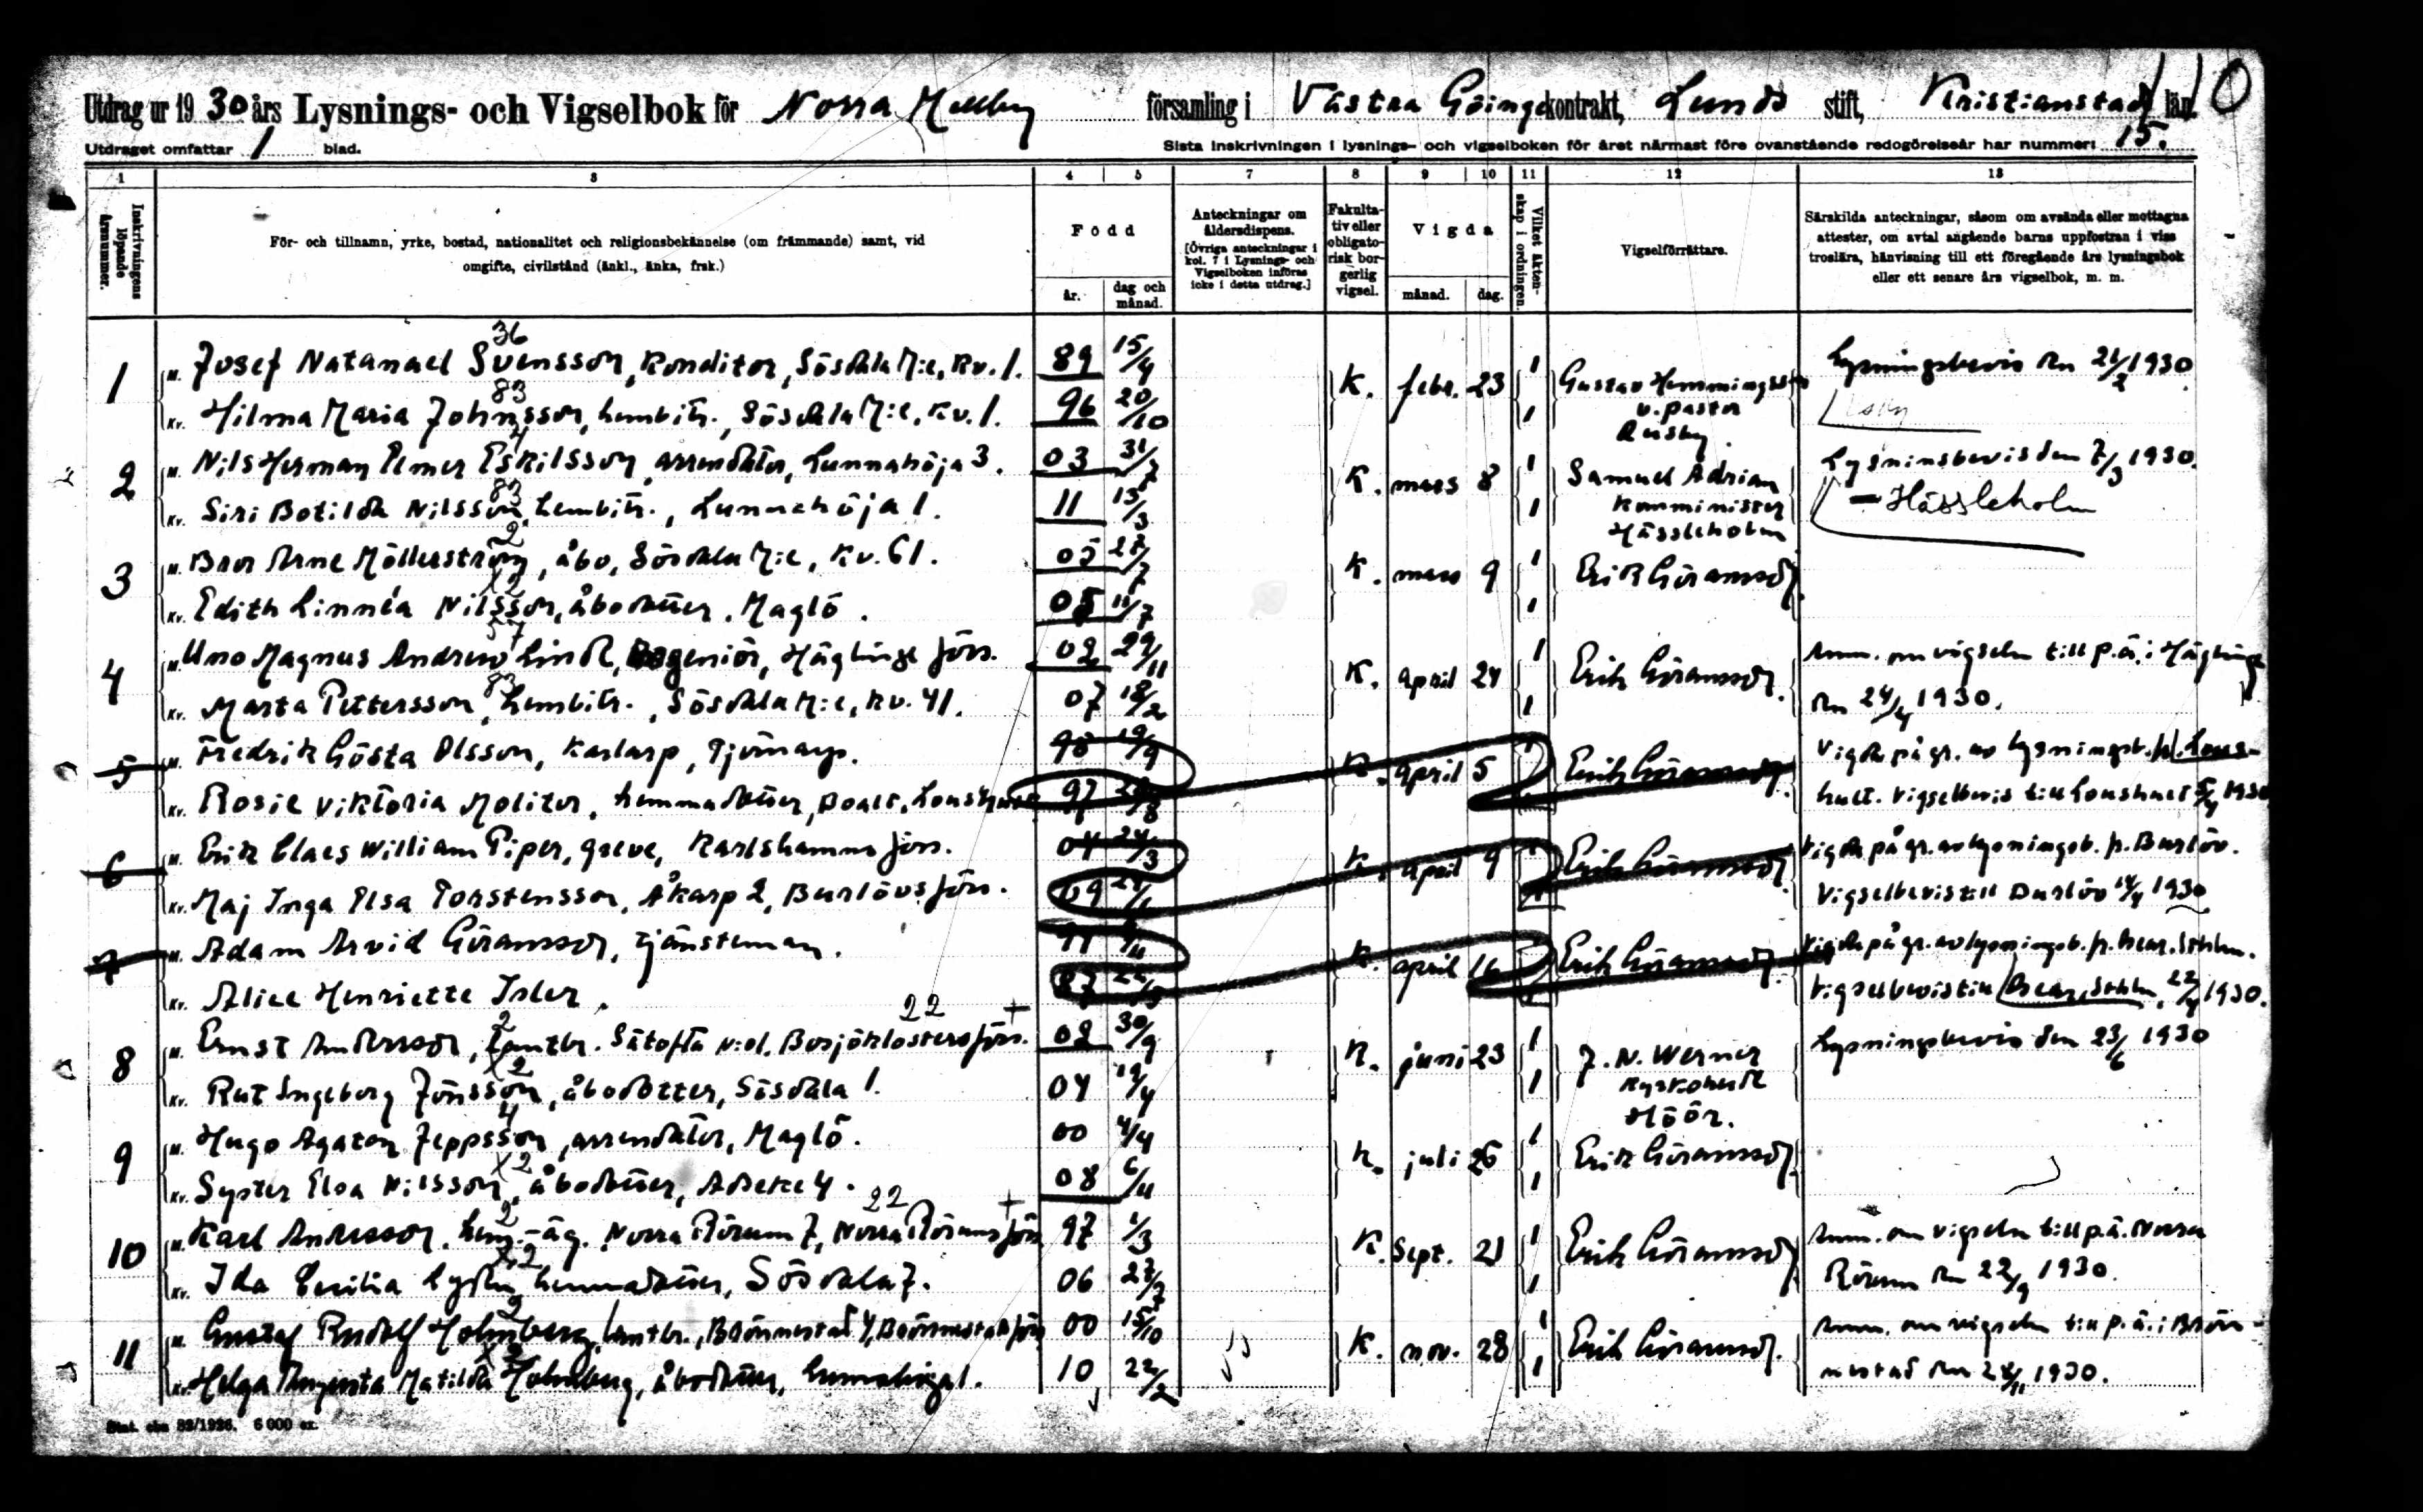 Utdrag ur 1930 års Lysnings- och Vigselbok för Norra Mellby församling i Västra Göinge kontrakt, Lunds stift, Kristianstads län. 10
Utdraget omfattar 1 blad. Sista inskrivningen i lysnings- och vigselboken för året närmast före ovanstående redogörelseår har nummer: 15.
1 3 4 5 7 8 9 10 11 12 13
Inskrivningens löpande årsnummer.
För- och tillnamn, yrke, bostad, nationalitet och religionsbekännelse (om främmande) samt, vid omgifte, civilstånd (änkl., änka, frsk.)
Född
år. dag och månad.
Anteckningar om åldersdispens. [Övriga anteckningar i kol. 7 i Lysnings- och Vigselboken införas icke i detta utdrag.]
Fakultativ eller obligatorisk borgerlig vigsel.
Vigda
månad. dag.
Vilket äktenskap i ordningen.
Vigselförrättare.
Särskilda anteckningar, såsom om avsända eller mottagna attester, om avtal angående barns uppfostran i viss troslära, hänvisning till ett föregående års lysningsbok eller ett senare års vigselbok, m. m.
36
1 M. Josef Natanael Svensson, Konditor, Sösdala M:e, Kv. 1. 89 15/4 K. febr. 23 1 Gustav Hemmingsson Lysningsbevis den 21/2 1930
83
Kv. Hilma Maria Johnsson, hembitr., Sösdala M:e, Kv. 1. 96 20/10 1 v. pastor
4
2 M. Nils Herman Elmer Eskilsson, arrendator, Lunnahöja 3. 03 31/7 K. mars 8 1 Samuel Adrian Lysninsbevis den 7/3 1930.
83
Kv. Siri Botilda Nilsson, hembitr., Lunnahöja 1. 11 13/3 1 Komminister Hässleholm – Hässleholm
2
3 M. Bror Arne Möllerström, åbo, Sösdala M:e, Kv. 61. 05 27/7 K. mars 9 1 Erik Göransson
X2
Kv. Edith Linnéa Nilsson, åbodotter, Maglö. 05 11/7 1
57
4 M. Uno Magnus Andrew Lindh, Ingeniör, Häglinge förs. 02 29/11 K. april 24 1 Erik Göransson. Ann. om vigseln till p.ä. i Häglinge
83
Kv. Marta Pettersson, hembitr., Sösdala M:e, Kv. 41. 07 18/2 1 den 24/4 1930.
5 M. Fredrik Gösta Olsson, Karlarp, Tjörnarp. 98 19/9 K. april 5 1 Erik Göransson Vigda på gr. av lysningsb. fr. Lons-
Kv. Rosie Viktoria Molitor, hemmadotter, Boalt, Lonshult 97 hult. Vigselbevis till Lonshult 5/4 1930
6 M. Erik Claes William Piper, greve, Karlshamns förs. 04 24/3 K. april 9 1 Erik Göransson. Vigda på gr. av lysningsb. fr. Burlöv.
Kv. Maj Inga Elsa Torstensson, Åkarp 2, Burlövs förs. 09 Vigselbevis till Burlöv 14/4 1930
7 M. Adam Arvid Göransson, tjänsteman. K. april 16 Erik Göransson. Vigda på gr. av lysningsb. fr. Oscar, Sthlm.
Kv. Alice Henriette Isler. 87 Vigselbevis till Oscar, Sthlm. 22/4 1930.
2 22 +
8 M. Ernst Andersson, Lantbr. Sätofta n:o1, Bosjöklosters förs. 02 30/9 K. juni 23 1 J. N. Werner Lysningsbevis den 23/6 1930
X2
Kv. Rut Ingeborg Jönsson, åbodotter, Sösdala 1. 04 19/4 1 Kyrkoherde Höör.
4
9 M. Hugo Agaton Jeppsson, arrendator, Maglö. 00 4/4 K. juli 26 1 Erik Göransson.
X2
Kv. Syster Elsa Nilsson, åbodotter, Adseke 4. 08 6/4 1
2 22 +
10 M. Karl Andersson, hem.-äg. Norra Rörum 7, Norra Rörums förs 97 1/3 K. Sept. 21 1 Erik Göransson Ann. om vigseln till p.ä. Norra
X2
Kv. Ida Cecilia hemmadotter, Sösdala 7. 06 27/7 1 Rörum den 22/9 1930.
2
11 M. Gustaf Rudolf Holmberg, lantbr., Brönnestad 4, Brönnestads förs 00 15/10 K. nov. 28 1 Erik Göransson. Ann. om vigseln till p.ä. i Brön-
X2
Kv. Helga Augusta Matilda Holmberg, åbodotter, 10 22/2 1 nestad den 1930.
Stat. obs 82/1926. 6 000 ex.